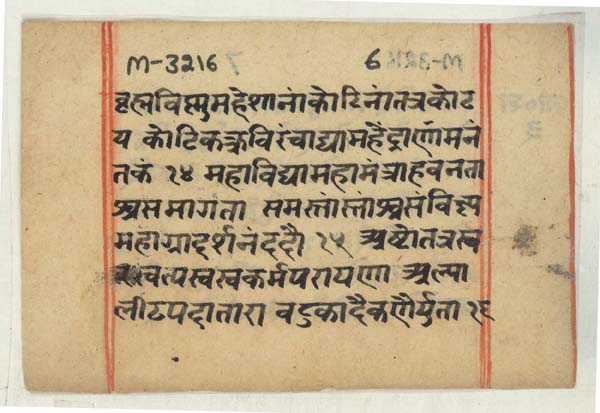 M-3216 6
ब्रह्मविष्णुमहेशानां कोटिनां तत्र कोट
य कोटिकक्रविरंचाद्यामहेंद्राणामनं
तकं १४ महाविद्यामहामंत्राहवनता
श्च समागता समस्तांस्तांश्च संविज्ञ्य
महाग्रादर्शनं ददौ १५ अष्टोतत्रस्व
त्पस्वस्वकर्मपरायणा
लीढपदातारा वटुकादैकणैर्युता १६